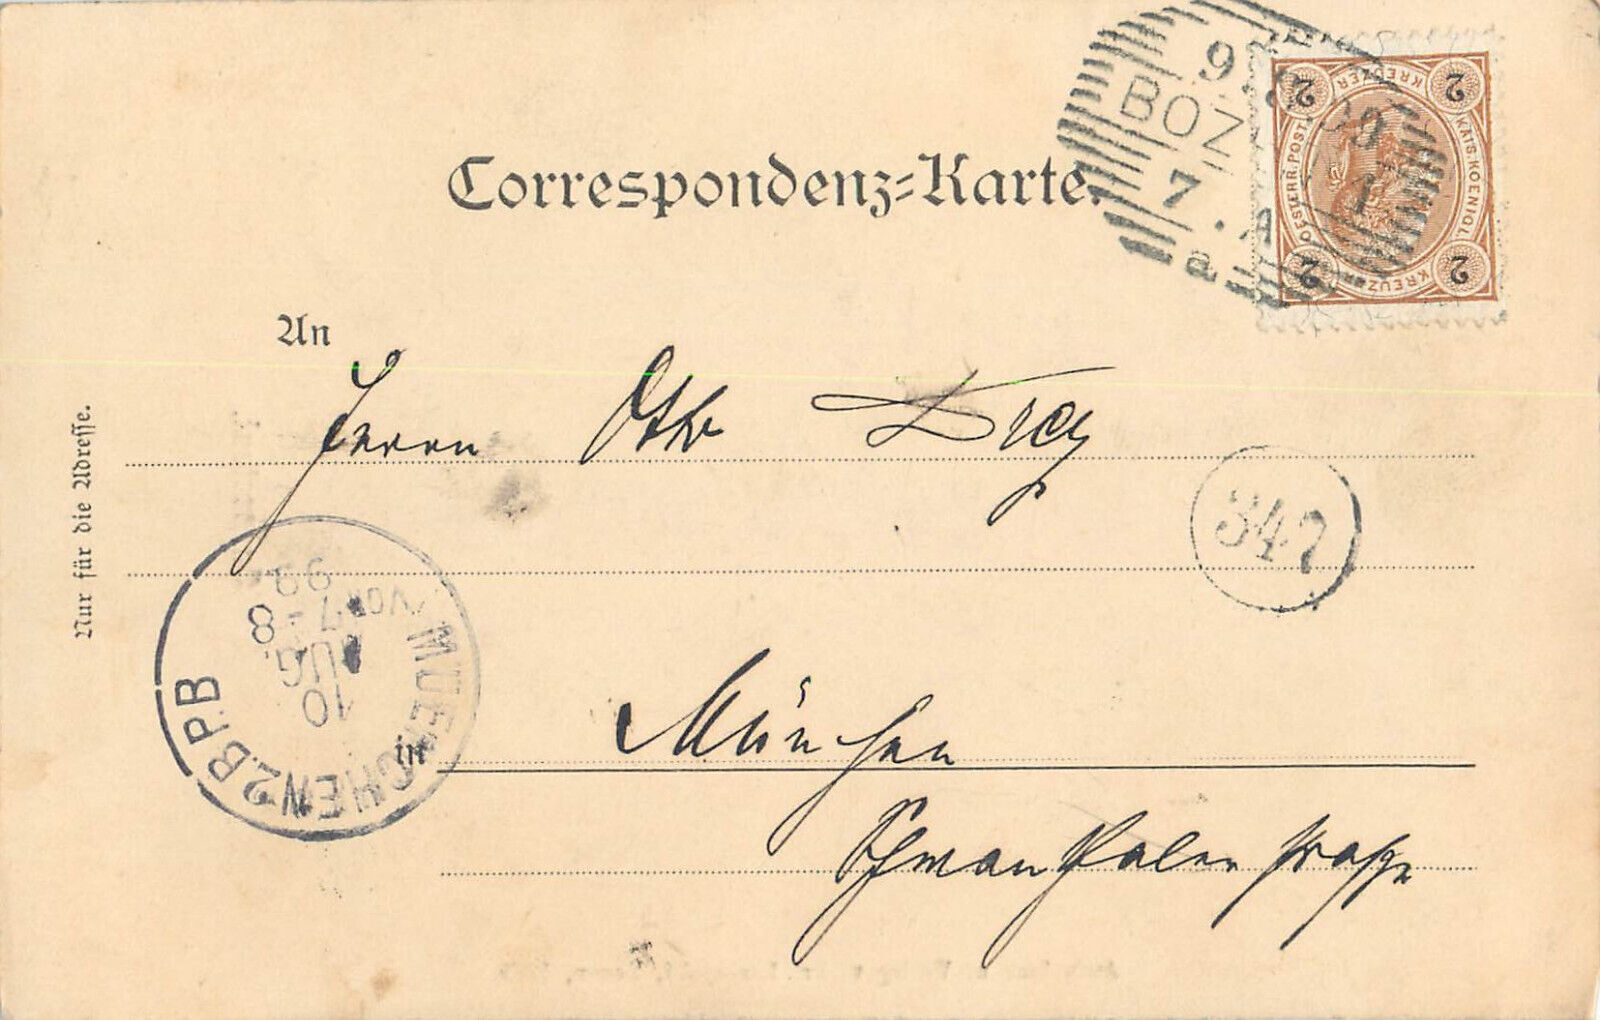 Correspondenz=Karte.
9. 8. 99
BOZ
7. A
a
2 KREUZER 2
KAIS. KOENIGL. OESTERR. POST.
2 KREUZER 2
An
Nur für die Adresse.
Herrn Otto
347
MUENCHEN 2 B.P.B
10
AUG.
VOR. 7-8
99
in
München
Schwanthalerstraße